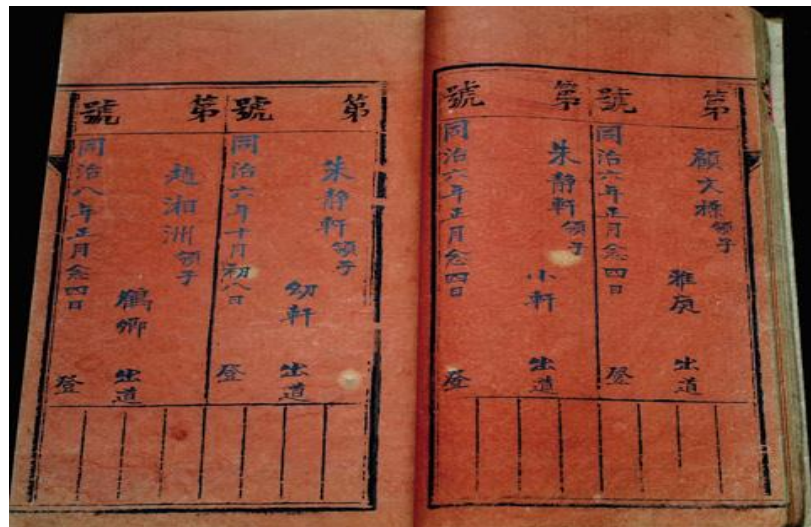 第號
顧文標領子
雅庭
出道
同治六年正月念四日
登
第號
朱靜軒領子
小軒
出道
同治六年正月念四日
登
第號
朱靜軒領子
幼軒
出道
同治六年十月初八日
登
第號
趙湘洲領子
鶴卿
出道
同治八年正月念四日
登